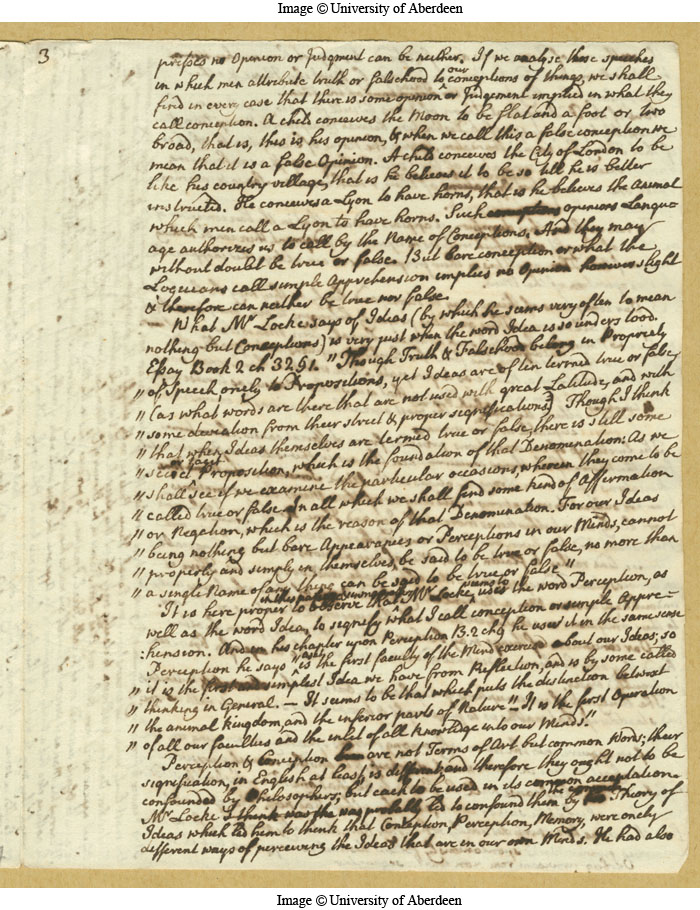 Image © University of Aberdeen
3
presses no Opinion or Judgment can be neither. If we analyse those speeches
in which men attribute truth or falsehood to our conceptions of things, we shall
find in every case that there is some opinion or Judgement implied in what they
call conception. A child conceives the Moon to be flat and a foot or two
broad, that is, this is his opinion, & when we call this a false conception we
mean that it is a false Opinion. A child conceives the City of London to be
like his country village, that is he believes it to be so till he is better
instructed. He conceives a Lyon to have horns, that is he believes the Animal
which men call a Lyon to have horns. Such opinions Langu-
age authorizes us to call by the Name of Conceptions. And they may
without doubt be true or false. But bare conception or what the
Logicians call simple Apprehension implies no Opinion however slight
& therefore can neither be true nor false.
What Mr Locke says of Ideas (by which he seems very often to mean
nothing but Conceptions) is very just when the word Idea is so understood.
Essay Book 2 ch 32 §1. "Though Truth & Falsehood belong in Propriety
" of Speech onely to Propositions, yet Ideas are often termed true or false,
" (as what words are there that are not used with great Latitude, and with
" some deviation from their strict & proper significations) Though I think
" that when Ideas themselves are termed true or false, there is still some
" secret or tacit Proposition, which is the foundation of that Denomination: As we
" shall see if we examine the particular occasions, wherein they come to be
" called true or false. In all which we shall find some kind of Affirmation
" or Negation, which is the reason of that Denomination. For our Ideas
" being nothing but bare Appearances or Perceptions in our Minds, cannot
" properly and simply in themselves be said to be true or false, no more than
" a single Name of any thing can be said to be true or false"
It is here proper to observe that Mr Locke uses the word Perception, as
well as the word Idea, to signify what I call conception or simple Appre-
:hension. And in his chapter upon Perception B.2 ch 9 he uses it in the same sense
Perception he says "as it is the first faculty of the Mind exercised about our Ideas; so
" it is the first and simplest Idea we have from Reflection, and is by some called
" thinking in General. — It seems to be that which puts the distinction betwixt
" the animal Kingdom, and the inferior parts of Nature" — It is the first Operation
" of all our faculties and the inlet of all Knowledge into our Minds."
Perception & Conception are not Terms of Art but common Words; their
signification, in English at least, is different and therefore they ought not to be
confounded by Philosophers; but each to be used in its common acceptation.
Mr Locke I think was led to confound them by the Theory of
Ideas which led him to think that Conception, Perception, Memory, were onely
different ways of perceiving the Ideas that are in our own Minds. He had also
Image © University of Aberdeen